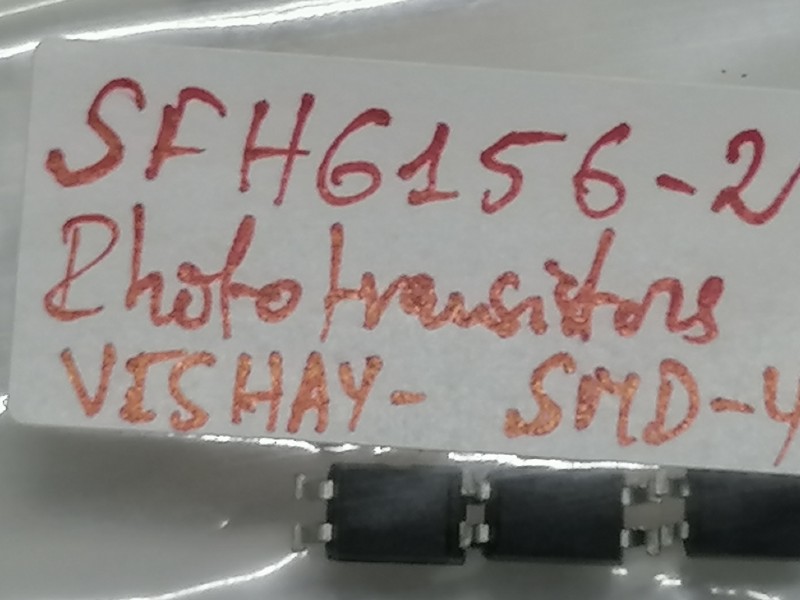 SFH6156-2
Phototransistors
VISHAY- SMD-4